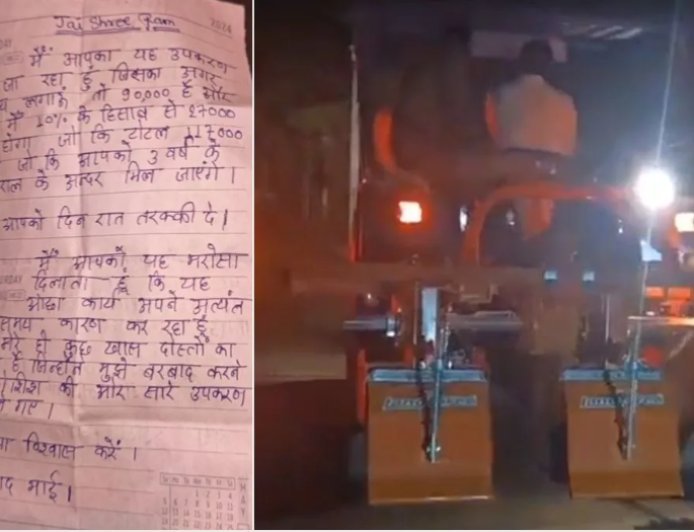 Jai Shree Ram
2024
मैं आपका यह उपकरण
जा रहा हूँ जिसका अगर
लगाऊं तो 90,000 है और
में 10% के हिसाब से 27000
होगा जो कि टोटल 117000
जो कि आपको 3 वर्ष के
के अन्दर मिल जाएंगे।
आपको दिन रात तरक्की दे।
मैं आपको यह भरोसा
दिलाता हूँ कि यह
ओछा कार्य अपने अत्यंत
समय कारण कर रहा हूँ
मेरे ही कुछ खास दोस्तों का
है जिन्होंने मुझे बरबाद करने
की और सारे उपकरण
गए।
विश्वास करें।
भाई।